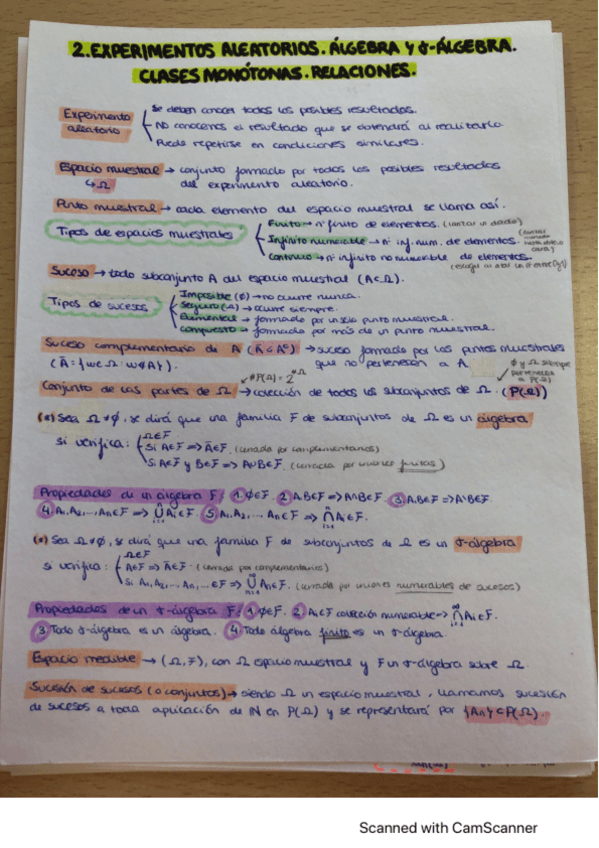 2. EXPERIMENTOS ALEATORIOS. ÁLGEBRA Y σ-ÁLGEBRA.
CLASES MONÓTONAS. RELACIONES.
Experimento aleatorio
Se deben conocer todos los posibles resultados.
No conocemos el resultado que se obtendrá al realizarlo
Puede repetirse en condiciones similares.
Espacio muestral → conjunto formado por todos los posibles resultados
↳ Ω del experimento aleatorio.
Punto muestral → cada elemento del espacio muestral se llama así.
Tipos de espacios muestrales
Finito → nº finito de elementos. (lanzar un dado)
Infinito numerable → nº inf. num. de elementos.
Continuo → nº infinito no numerable de elementos.
Suceso → todo subconjunto A del espacio muestral (A⊂Ω).
Tipos de sucesos
Imposible (∅) → no ocurre nunca.
Seguro (Ω) → ocurre siempre.
Elemental → formado por un solo punto muestral.
Compuesto → formado por más de un punto muestral.
Suceso complementario de A (Ā ó Aᶜ) → suceso formado por los puntos muestrales
(Ā = {w∈Ω : w∉A}). que no pertenecen a A
∅ y Ω siempre pertenecen a P(Ω)
#P(Ω) = 2^#Ω
Conjunto de las partes de Ω → colección de todos los subconjuntos de Ω. (P(Ω))
Sea Ω≠∅, se dirá que una familia F de subconjuntos de Ω es un álgebra
si verifica:
Ω∈F
Si A∈F ⇒ Ā∈F. (cerrada por complementarios)
Si A∈F y B∈F ⇒ A∪B∈F. (cerrada por uniones finitas)
Propiedades de un álgebra F: 1. ∅∈F. 2. A,B∈F ⇒ A∩B∈F. 3. A,B∈F ⇒ A\B∈F.
4. A₁, A₂, ..., Aₙ∈F ⇒ ⋃ⁿᵢ₌₁ Aᵢ∈F. 5. A₁, A₂, ... Aₙ∈F ⇒ ⋂ⁿᵢ₌₁ Aᵢ∈F.
Sea Ω≠∅, se dirá que una familia F de subconjuntos de Ω es un σ-álgebra
si verifica:
Ω∈F
A∈F ⇒ Ā∈F. (cerrada por complementarios)
Si A₁, A₂, ..., Aₙ, ...∈F ⇒ ⋃^∞ₙ₌₁ Aₙ∈F. (cerrada por uniones numerables de sucesos)
Propiedades de un σ-álgebra F: 1. ∅∈F. 2. Aᵢ∈F colección numerable ⇒ ⋂^∞ᵢ₌₁ Aᵢ∈F.
3. Todo σ-álgebra es un álgebra. 4. Todo álgebra finito es un σ-álgebra.
Espacio medible → (Ω, F), con Ω espacio muestral y F un σ-álgebra sobre Ω.
Sucesión de sucesos (o conjuntos) → siendo Ω un espacio muestral, llamamos sucesión
de sucesos a toda aplicación de ℕ en P(Ω) y se representará por {Aₙ}⊂P(Ω).
Scanned with CamScanner